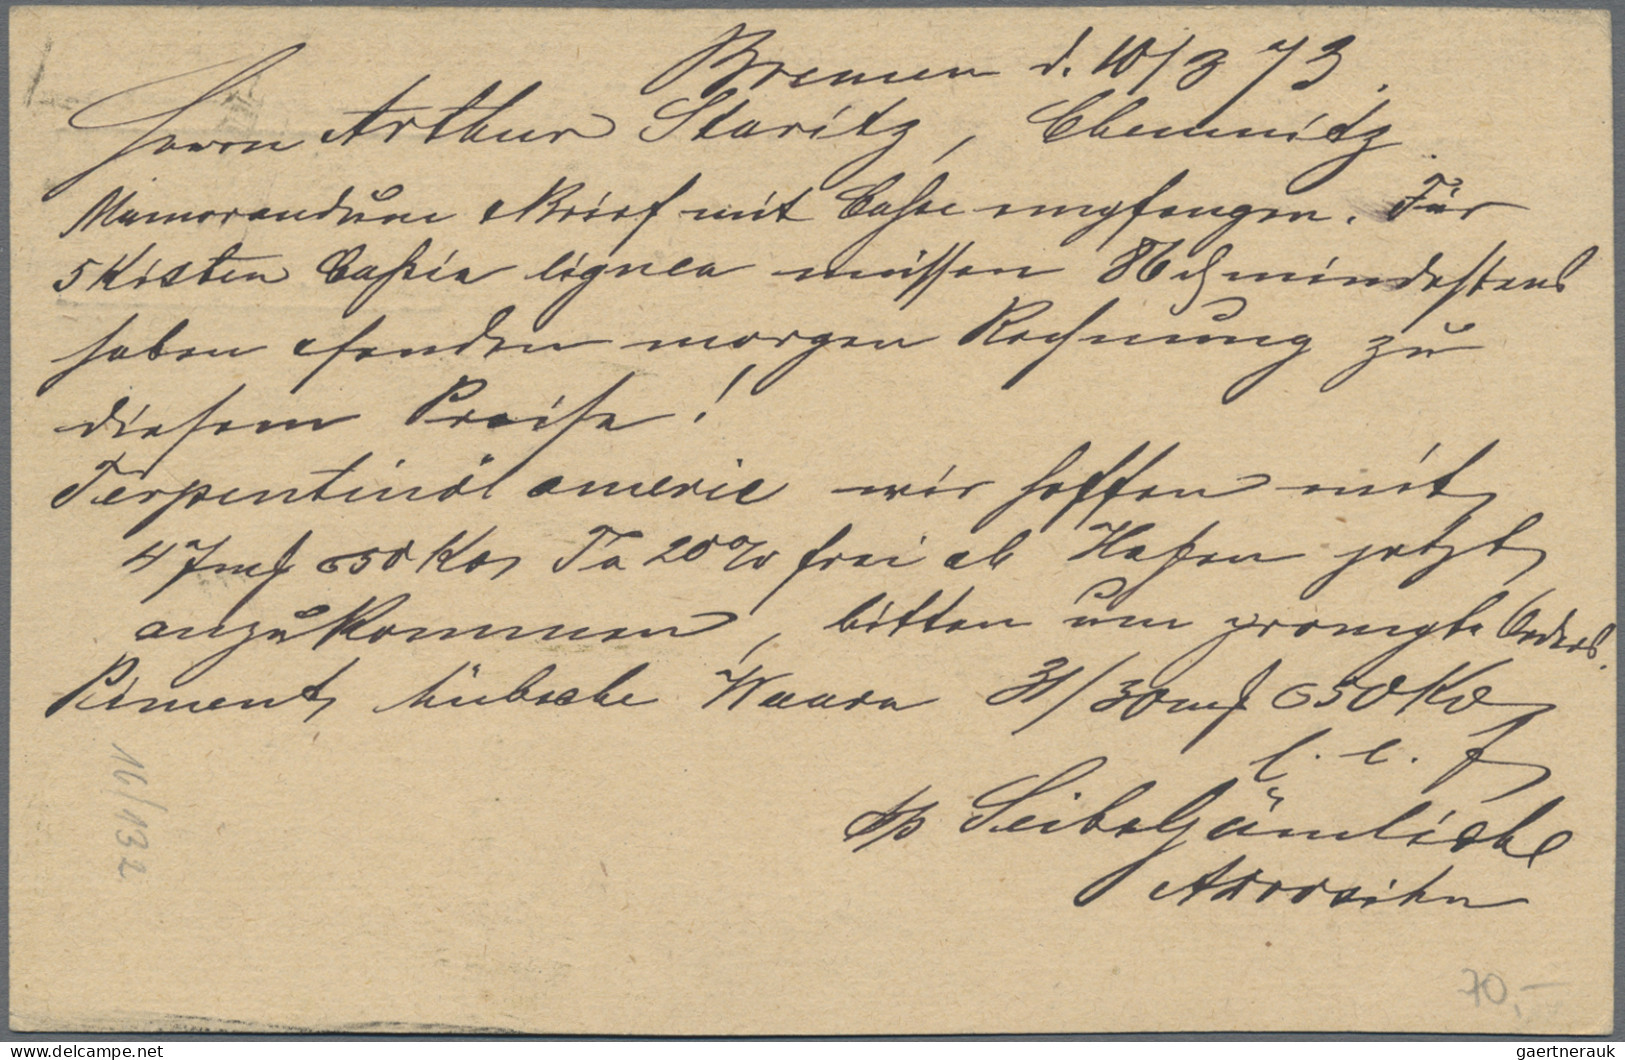 Bremen d. 10/3 73.
Herrn Arthur Staritz, Chemnitz.
Memorandum & Brief mit Casse empfangen. Für
5 Kisten Cassia lignea müssen 86 mindestens
haben & senden morgen Rechnung zu
diesem Preise!
Terpentinöl americ wir hoffen mit
47 mf 50 Ko Ta 20% frei ab Hafen jetzt
anzukommen, bitten um prompte Orders.
Piment hübsche Waare 31/30 mf 50 Ko
c. c. f
pp
16/132
70,-
delcampe.net
gaertnerauk